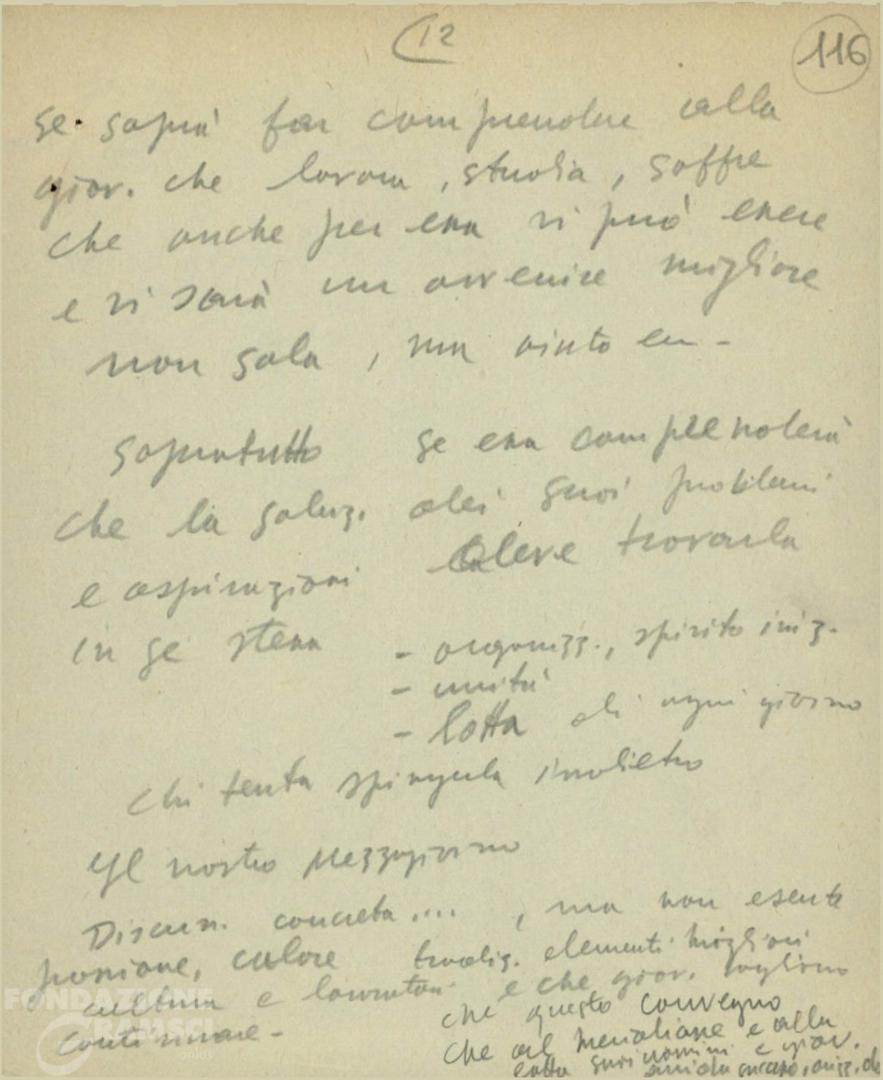 12
116
se saprà far comprendere alla
giov. che lavora, studia, soffre
che anche per essa vi può essere
e vi sarà un avvenire migliore
non sola, ma aiuto
Soprattutto se essa comprenderà
che la soluz. dei suoi problemi
e aspirazioni deve trovarla
in se stessa - organizz., spirito iniz.
- unità
- lotta di ogni giorno
Chi tenta spingerla indietro
Il nostro Mezzogiorno
Discuss. concreta...., ma non esente
passione, calore tradiz. elementi migliori
cultura e lavoratori e che giov. vogliono
continuare -
che questo convegno
che dal meridione e alla
lotta suoi uomini e giov.
FONDAZIONE
GRAMSCI
onlus